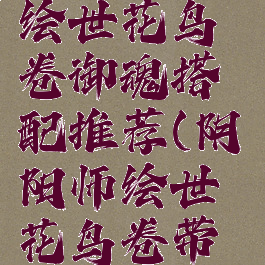 绘世花鸟
卷御魂搭
配推荐(阴
阳师绘世
花鸟卷带